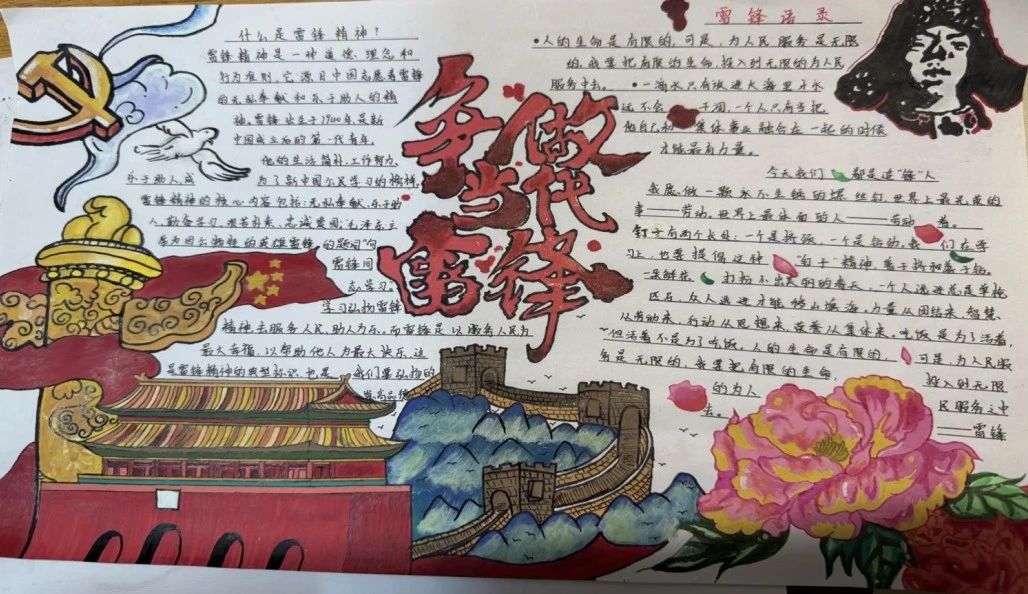 什么是雷锋精神?
雷锋精神是一种道德、理念和
行为准则,它源自中国志愿者雷锋
的无私奉献和乐于助人的精
神。雷锋出生于1940年,是新
中国成立后的第一代青年,
他的生活简朴,工作努力、
乐于助人,成为了新中国人民学习的榜样。
雷锋精神的核心内容包括:无私奉献、乐于助
人、勤奋学习、艰苦朴素、忠诚爱国;毛泽东主
席为因公牺牲的英雄雷锋的题词"向
雷锋同
志学习。
学习弘扬雷锋
精神去服务人民,助人为乐,而雷锋是以服务人民为
最大幸福,以帮助他人为最大快乐,这
是雷锋精神的典型标识,也是我们要弘扬的
崇高品德
争做
当代
雷锋
雷锋语录
•人的生命是有限的,可是,为人民服务是无限
的,我要把有限的生命,投入到无限的为人民
服务中去。•一滴水只有放进大海里才永
远不会干涸,一个人只有当把
他自己和集体事业融合在一起的时候
才能最有力量。
今天我们都是追"锋"人
我愿做一颗永不生锈的螺丝钉,世界上最光荣的
事——劳动。世界上最体面的人——劳动者。
钉子有两个长处:一个是挤劲,一个是钻劲,我们在学
习上,也要提倡这种"钉子"精神,善于挤和善于钻。
一朵鲜花打扮不出美丽的春天,一个人先进总是单枪
匹马,众人先进才能移山填海,力量从团结来,智慧
从劳动来,行动从思想来,荣誉从集体来。吃饭是为了活着,
但活着不是为了吃饭,人的生命是有限的,可是,为人民服
务是无限的,我要把有限的生命,投入到无限
的为人民服务之中
去。——雷锋